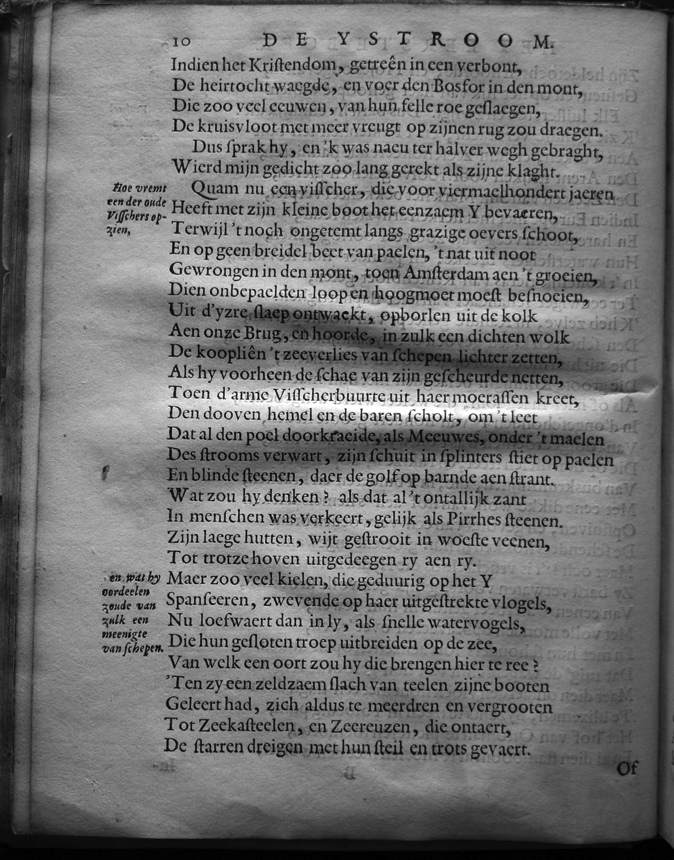 10 DE YSTROOM.
Indien het Kriſtendom, getreên in een verbont,
De heirtocht waegde, en voer den Bosfor in den mont,
Die zoo veel eeuwen, van hun felle roe geſlaegen,
De kruisvloot met meer vreugt op zijnen rug zou draegen.
Dus ſprak hy, en 'k was naeu ter halver wegh gebraght,
Wierd mijn gedicht zoo lang gerekt als zijne klaght.
Hoe vremt
een der oude
Viſſchers op-
zien,
Quam nu een viſſcher, die voor viermaelhondert jaeren
Heeft met zijn kleine boot het eenzaem Y bevaeren,
Terwijl 't noch ongetemt langs grazige oevers ſchoot,
En op geen breidel beet van paelen, 't nat uit noot
Gewrongen in den mont, toen Amſterdam aen 't groeien,
Dien onbepaelden loop en hoogmoet moeſt beſnoeien,
Uit d'yzre ſlaep ontwaekt, opborlen uit de kolk
Aen onze Brug, en hoorde, in zulk een dichten wolk
De koopliên 't zeeverlies van ſchepen lichter zetten,
Als hy voorheen de ſchae van zijn geſcheurde netten,
Toen d'arme Viſſcherbuurte uit haer moeraſſen kreet,
Den dooven hemel en de baren ſcholt, om 't leet
Dat al den poel doorkraeide, als Meeuwes, onder 't maelen
Des ſtrooms verwart, zijn ſchuit in ſplinters ſtiet op paelen
En blinde ſteenen, daer de golf op barnde aen ſtrant.
Wat zou hy denken? als dat al 't ontallijk zant
In menſchen was verkeert, gelijk als Pirrhes ſteenen.
Zijn laege hutten, wijt geſtrooit in woeſte veenen,
Tot trotze hoven uitgedeegen ry aen ry.
en wat hy
oordeelen
zoude van
zulk een
meenigte
van ſchepen.
Maer zoo veel kielen, die geduurig op het Y
Spanſeeren, zwevende op haer uitgeſtrekte vlogels,
Nu loefwaert dan in ly, als ſnelle watervogels,
Die hun geſloten troep uitbreiden op de zee,
Van welk een oort zou hy die brengen hier te ree?
'Ten zy een zeldzaem ſlach van teelen zijne booten
Geleert had, zich aldus te meerdren en vergrooten
Tot Zeekaſteelen, en Zeereuzen, die ontaert,
De ſtarren dreigen met hun ſteil en trots gevaert.
Of